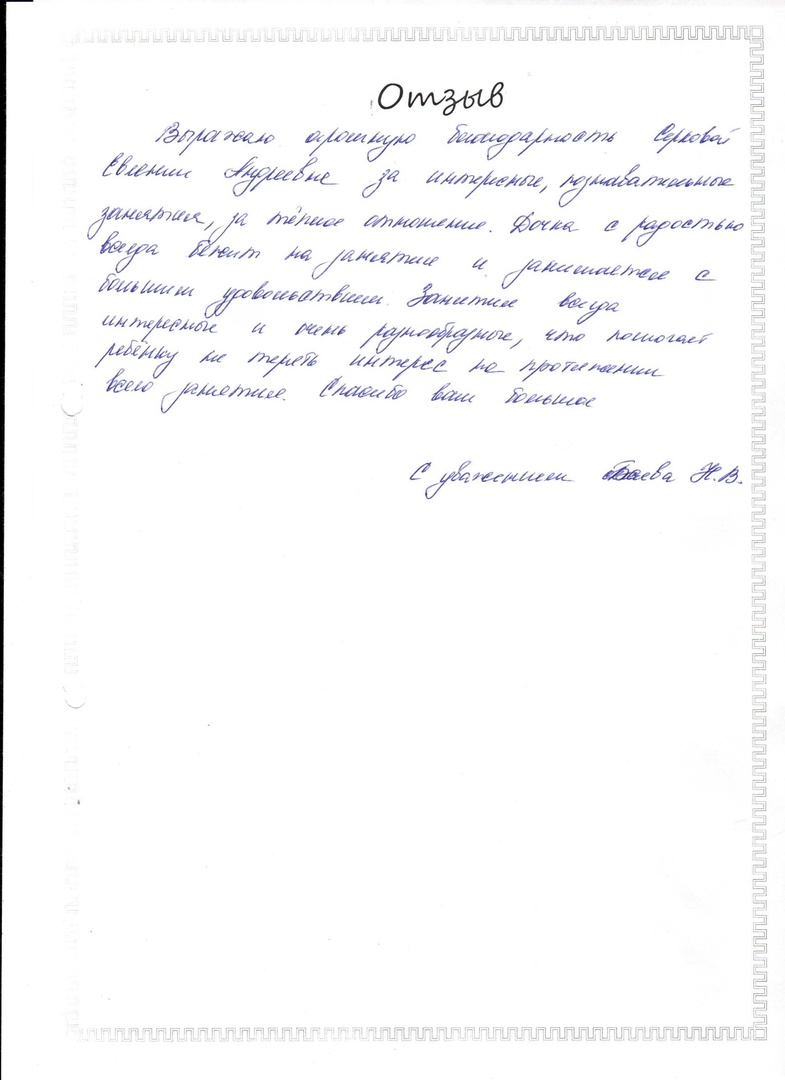 Отзыв
Выражаю огромную благодарность Серковой
Евгении Андреевне за интересные, познавательные
занятия, за тёплое отношение. Дочка с радостью
всегда бежит на занятие и занимается с
большим удовольствием. Занятие всегда
интересные и очень разнообразные, что помогает
ребёнку не терять интерес на протяжении
всего занятия. Спасибо вам большое
С уважением Н.В.